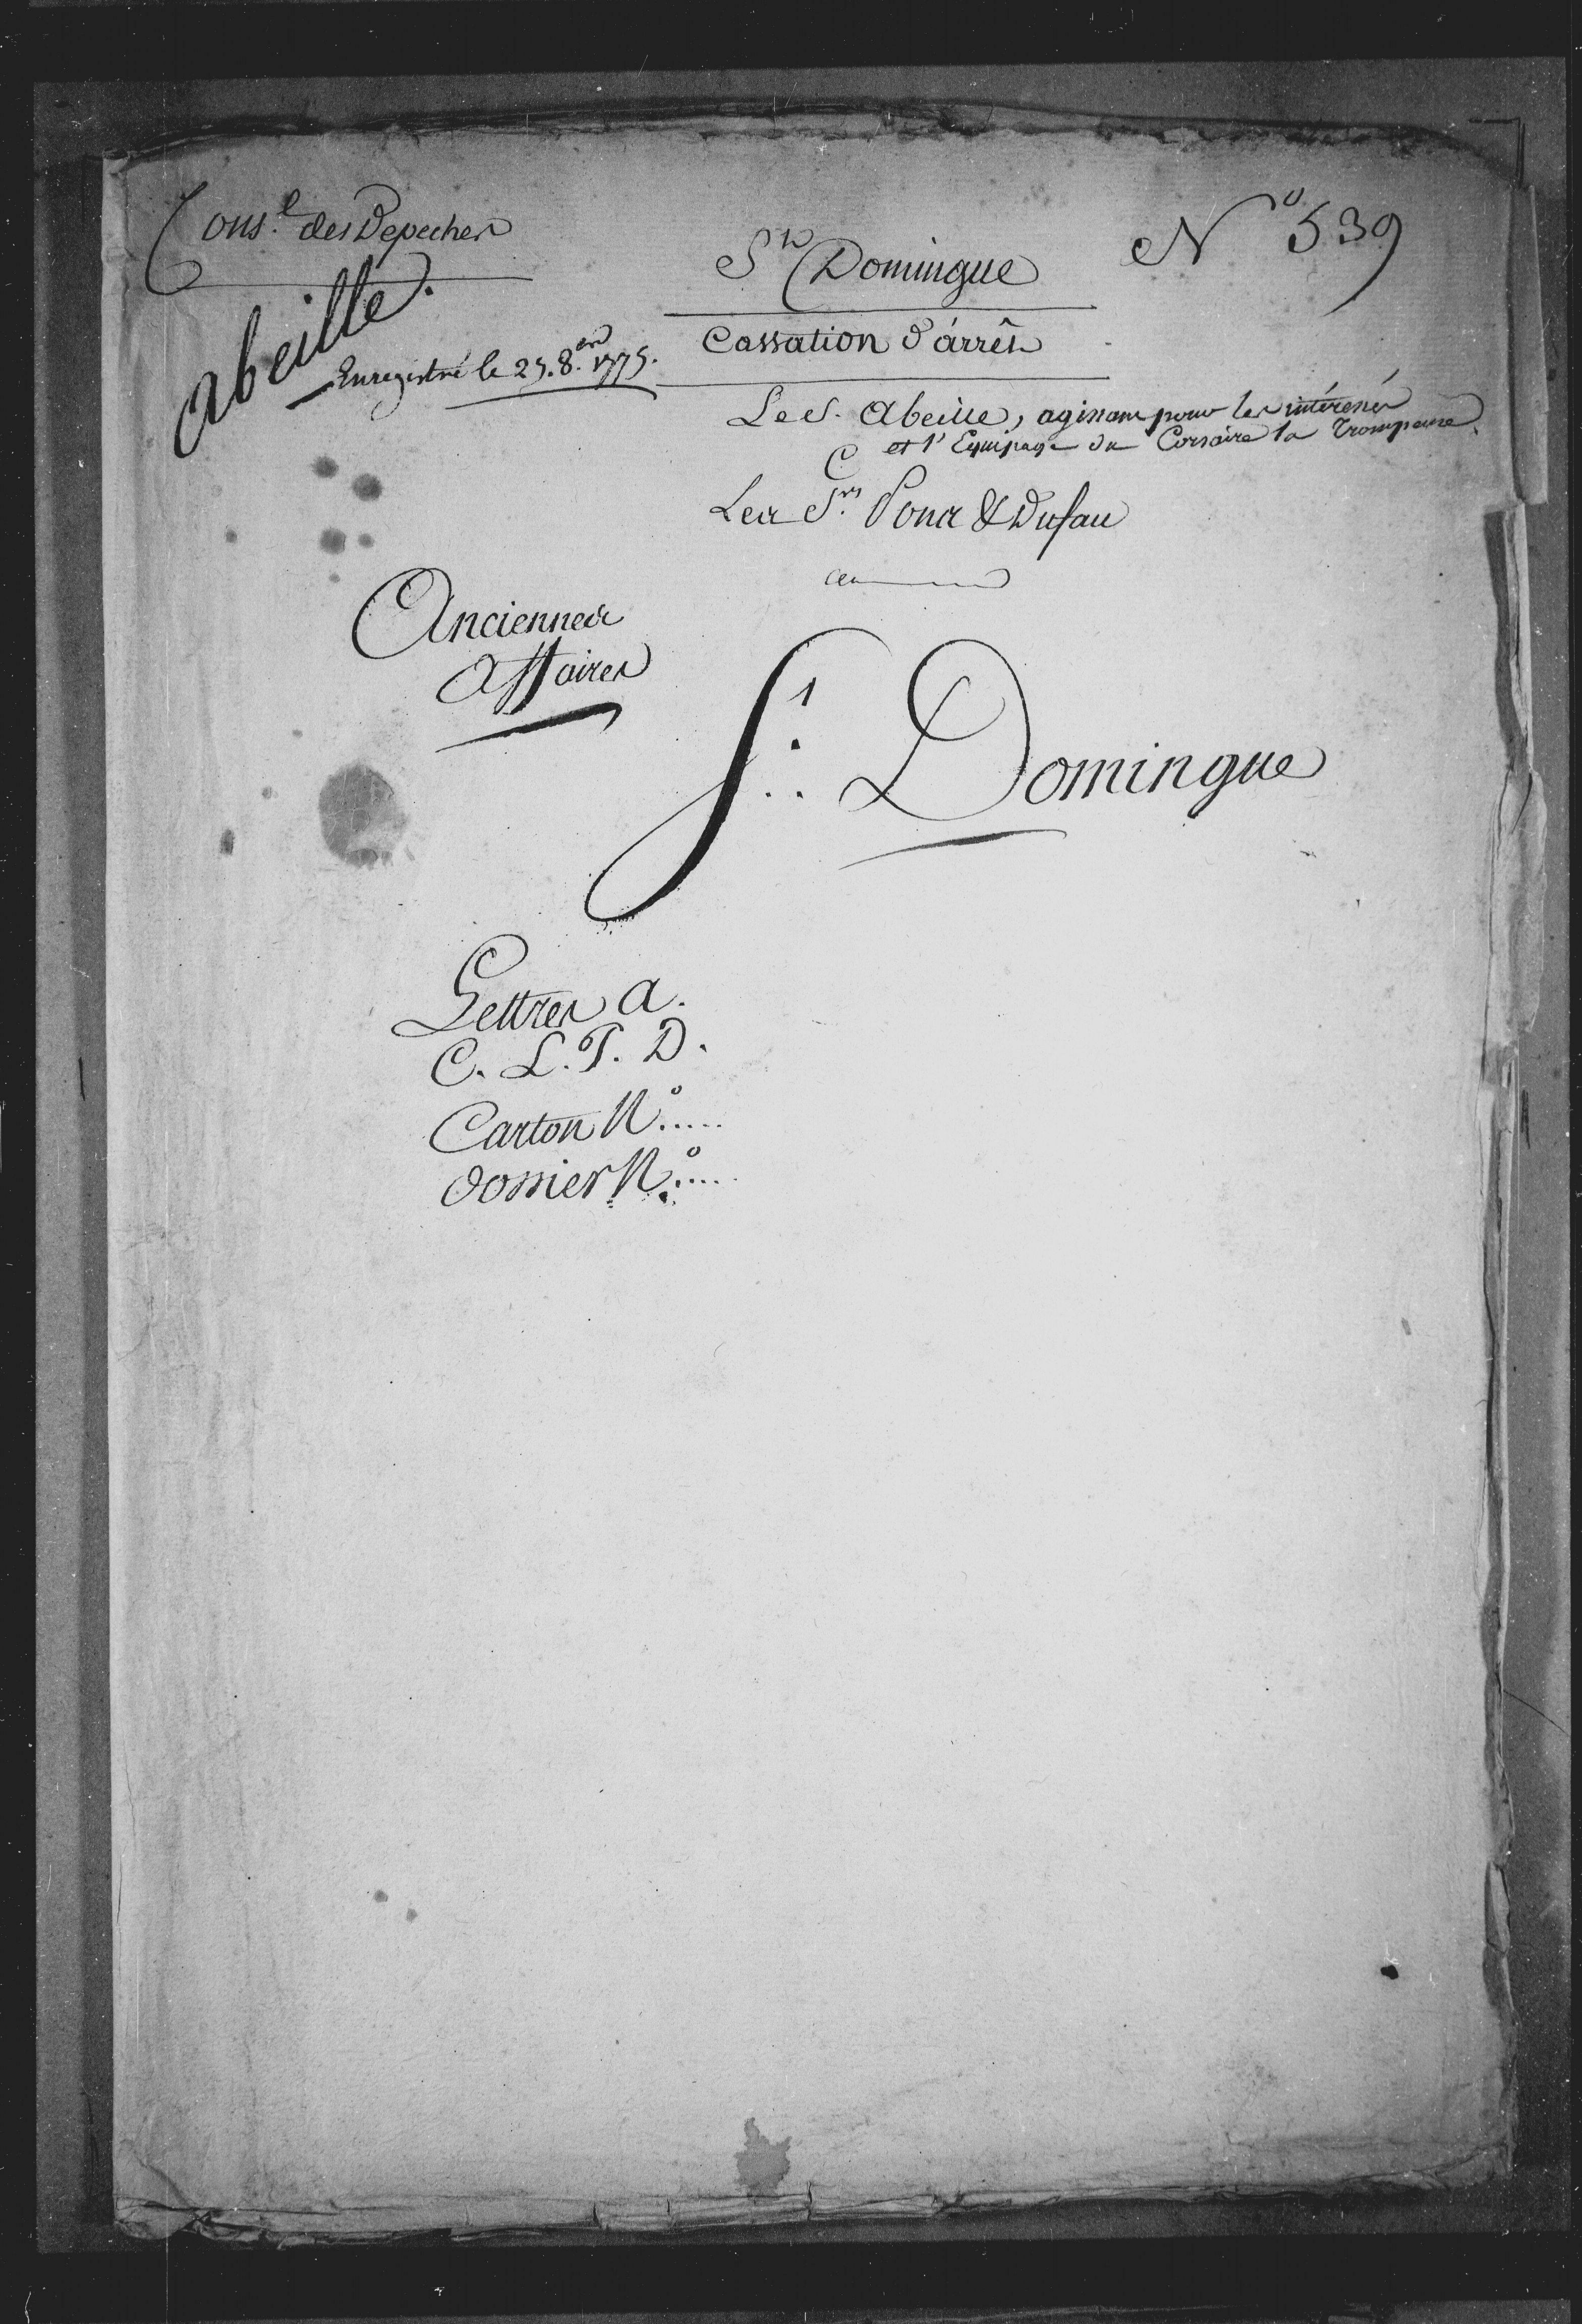 Cons.l des Depeches
Abeille.
Enregistré le 25. 8.bre 1775.
St Domingue
N° 539
Cassation d'árrêt
Le S. Abeille, agissant pour les intéressés
et l'Equipage du Corsaire la Trompeuse
C
Les Srs Pons & Dufau
Anciennes
Affaires
St. Domingue
Lettres A.
C. L. P. D.
Carton N°.....
dossier N°.....